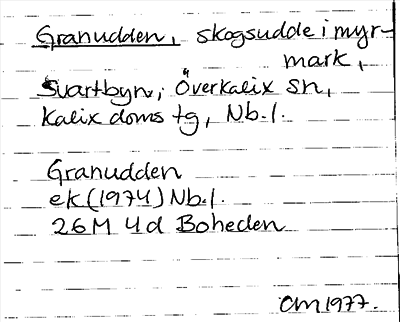 Granudden, skogsudde i myr-
mark,
Svartbyn, Överkalix sn,
Kalix doms tg, Nb.l.
Granudden
ek (1974) Nb.l.
26M 4d Boheden
OM 1977.